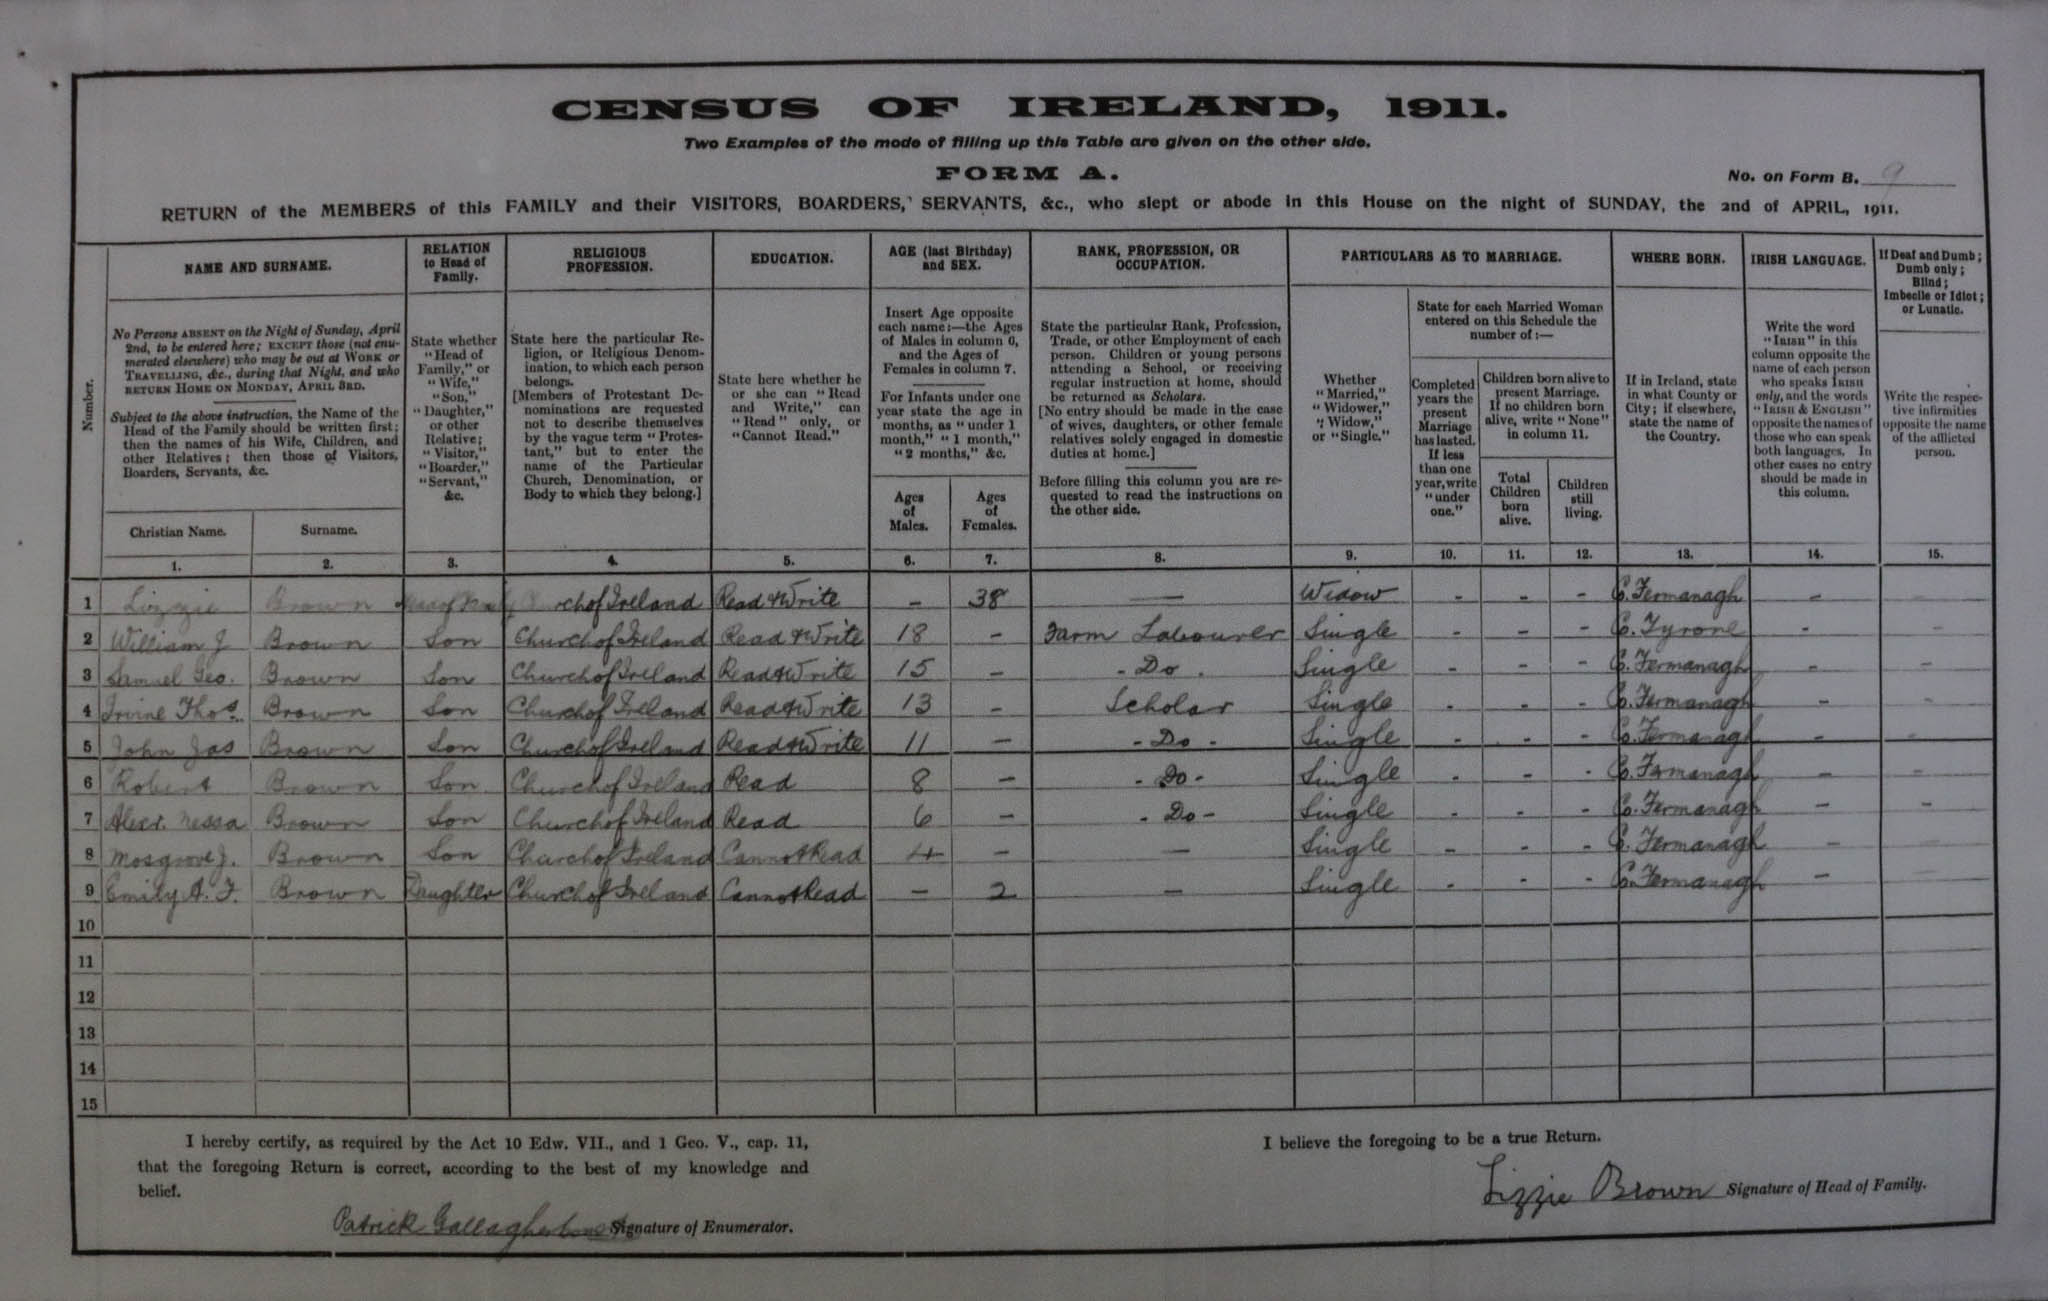 CENSUS OF IRELAND, 1911.
Two Examples of the mode of filling up this Table are given on the other side.
FORM A.
No. on Form B. 9
RETURN of the MEMBERS of this FAMILY and their VISITORS, BOARDERS, SERVANTS, &c., who slept or abode in this House on the night of SUNDAY, the 2nd of APRIL, 1911.
Number.
NAME AND SURNAME.
No Persons ABSENT on the Night of Sunday, April
2nd, to be entered here; EXCEPT those (not enu-
merated elsewhere) who may be out at WORK or
TRAVELLING, &c., during that Night, and who
RETURN HOME ON MONDAY, APRIL 3RD.
Subject to the above instruction, the Name of the
Head of the Family should be written first;
then the names of his Wife, Children, and
other Relatives; then those of Visitors,
Boarders, Servants, &c.
Christian Name. Surname.
1. 2.
RELATION
to Head of
Family.
State whether
"Head of
Family," or
"Wife,"
"Son,"
"Daughter,"
or other
Relative;
"Visitor,"
"Boarder,"
"Servant,"
&c.
3.
RELIGIOUS
PROFESSION.
State here the particular Re-
ligion, or Religious Denom-
ination, to which each person
belongs.
[Members of Protestant De-
nominations are requested
not to describe themselves
by the vague term "Protes-
tant," but to enter the
name of the Particular
Church, Denomination, or
Body to which they belong.]
4.
EDUCATION.
State here whether he
or she can "Read
and Write," can
"Read" only, or
"Cannot Read."
5.
AGE (last Birthday)
and SEX.
Insert Age opposite
each name:—the Ages
of Males in column 6,
and the Ages of
Females in column 7.
For Infants under one
year state the age in
months, as "under 1
month," "1 month,"
"2 months," &c.
Ages
of
Males.
Ages
of
Females.
6. 7.
RANK, PROFESSION, OR
OCCUPATION.
State the particular Rank, Profession,
Trade, or other Employment of each
person. Children or young persons
attending a School, or receiving
regular instruction at home, should
be returned as Scholars.
[No entry should be made in the case
of wives, daughters, or other female
relatives solely engaged in domestic
duties at home.]
Before filling this column you are re-
quested to read the instructions on
the other side.
8.
PARTICULARS AS TO MARRIAGE.
Whether
"Married,"
"Widower,"
"Widow,"
or "Single."
9.
State for each Married Woman
entered on this Schedule the
number of:—
Completed
years the
present
Marriage
has lasted.
If less
than one
year, write
"under
one."
10.
Children born alive to
present Marriage.
If no children born
alive, write "None"
in column 11.
Total
Children
born
alive.
Children
still
living.
11. 12.
WHERE BORN.
If in Ireland, state
in what County or
City; if elsewhere,
state the name of
the Country.
13.
IRISH LANGUAGE.
Write the word
"IRISH" in this
column opposite the
name of each person
who speaks IRISH
only, and the words
"IRISH & ENGLISH"
opposite the names of
those who can speak
both languages. In
other cases no entry
should be made in
this column.
14.
If Deaf and Dumb;
Dumb only;
Blind;
Imbecile or Idiot;
or Lunatic.
Write the respec-
tive infirmities
opposite the name
of the afflicted
person.
15.
1 Lizzie Brown Head of Family Church of Ireland Read & Write - 38 — Widow - - - Co. Fermanagh - -
2 William J Brown Son Church of Ireland Read & Write 18 - Farm Labourer Single - - - Co. Tyrone - -
3 Samuel Geo. Brown Son Church of Ireland Read & Write 15 - - Do. Single - - - Co. Fermanagh - -
4 Irvine Thos. Brown Son Church of Ireland Read & Write 13 - Scholar Single - - - Co. Fermanagh - -
5 John Jas Brown Son Church of Ireland Read & Write 11 - - Do - Single - - - Co. Fermanagh - -
6 Robert Brown Son Church of Ireland Read 8 - - Do - Single - - - Co. Fermanagh - -
7 Alexr. Nessa Brown Son Church of Ireland Read 6 - - Do - Single - - - Co. Fermanagh - -
8 Mosgrove J. Brown Son Church of Ireland Cannot Read 4 - — Single - - - Co. Fermanagh - -
9 Emily A. F. Brown Daughter Church of Ireland Cannot Read - 2 — Single - - - Co. Fermanagh - -
10
11
12
13
14
15
I hereby certify, as required by the Act 10 Edw. VII., and 1 Geo. V., cap. 11,
that the foregoing Return is correct, according to the best of my knowledge and
belief.
Patrick Gallagher Const Signature of Enumerator.
I believe the foregoing to be a true Return.
Lizzie Brown Signature of Head of Family.